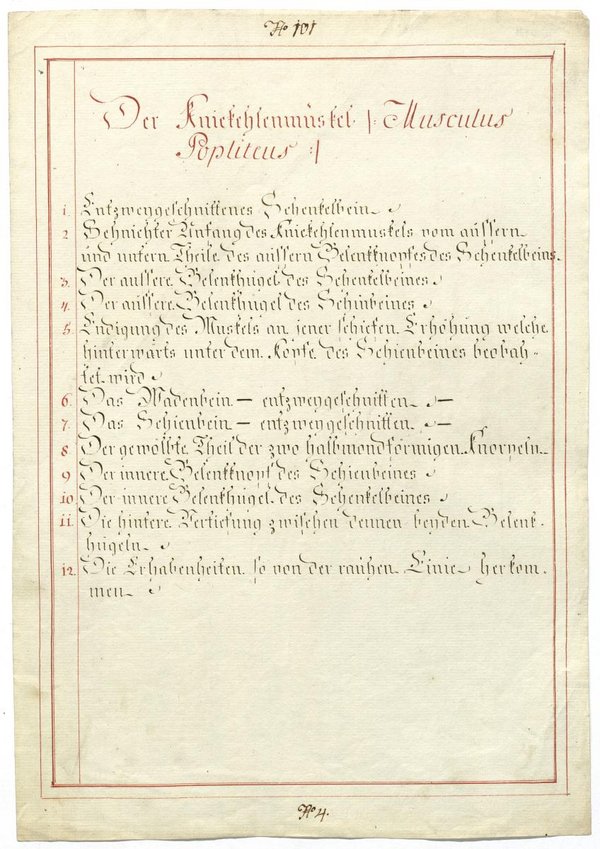 No 101
Der Kniekehlenmuskel /: Musculus
Popliteus :/
1. Entzweygeschnittenes Schenkelbein
2 Sehnichter Anfang des Kniekehlenmuskels vom äussern
und untern Theile des äussern Gelenkknopfes des Schenkelbeins
3. Der äussere Gelenkhügel des Schenkelbeines
4. Der äussere Gelenkhügel des Schinbeines
5. Endigung des Muskels an jener schiefen Erhöhung welche
hinterwärts unter dem Kopfe des Schienbeines beobah-
tet wird
6. Das Wadenbein — entzweygeschnitten —
7. Das Schienbein — entzweygeschnitten —
8 Der gewölbte Theil der zwo halbmondförmigen Knorpeln
9 Der innere Gelenkknopf des Schienbeines
10 Der innere Gelenkhügel des Schenkelbeines
11. Die hintere Vertiefung zwischen dennen beyden Gelenk-
hügeln
12. Die Erhabenheiten so von der rauhen Linie herkom-
men
No 4.